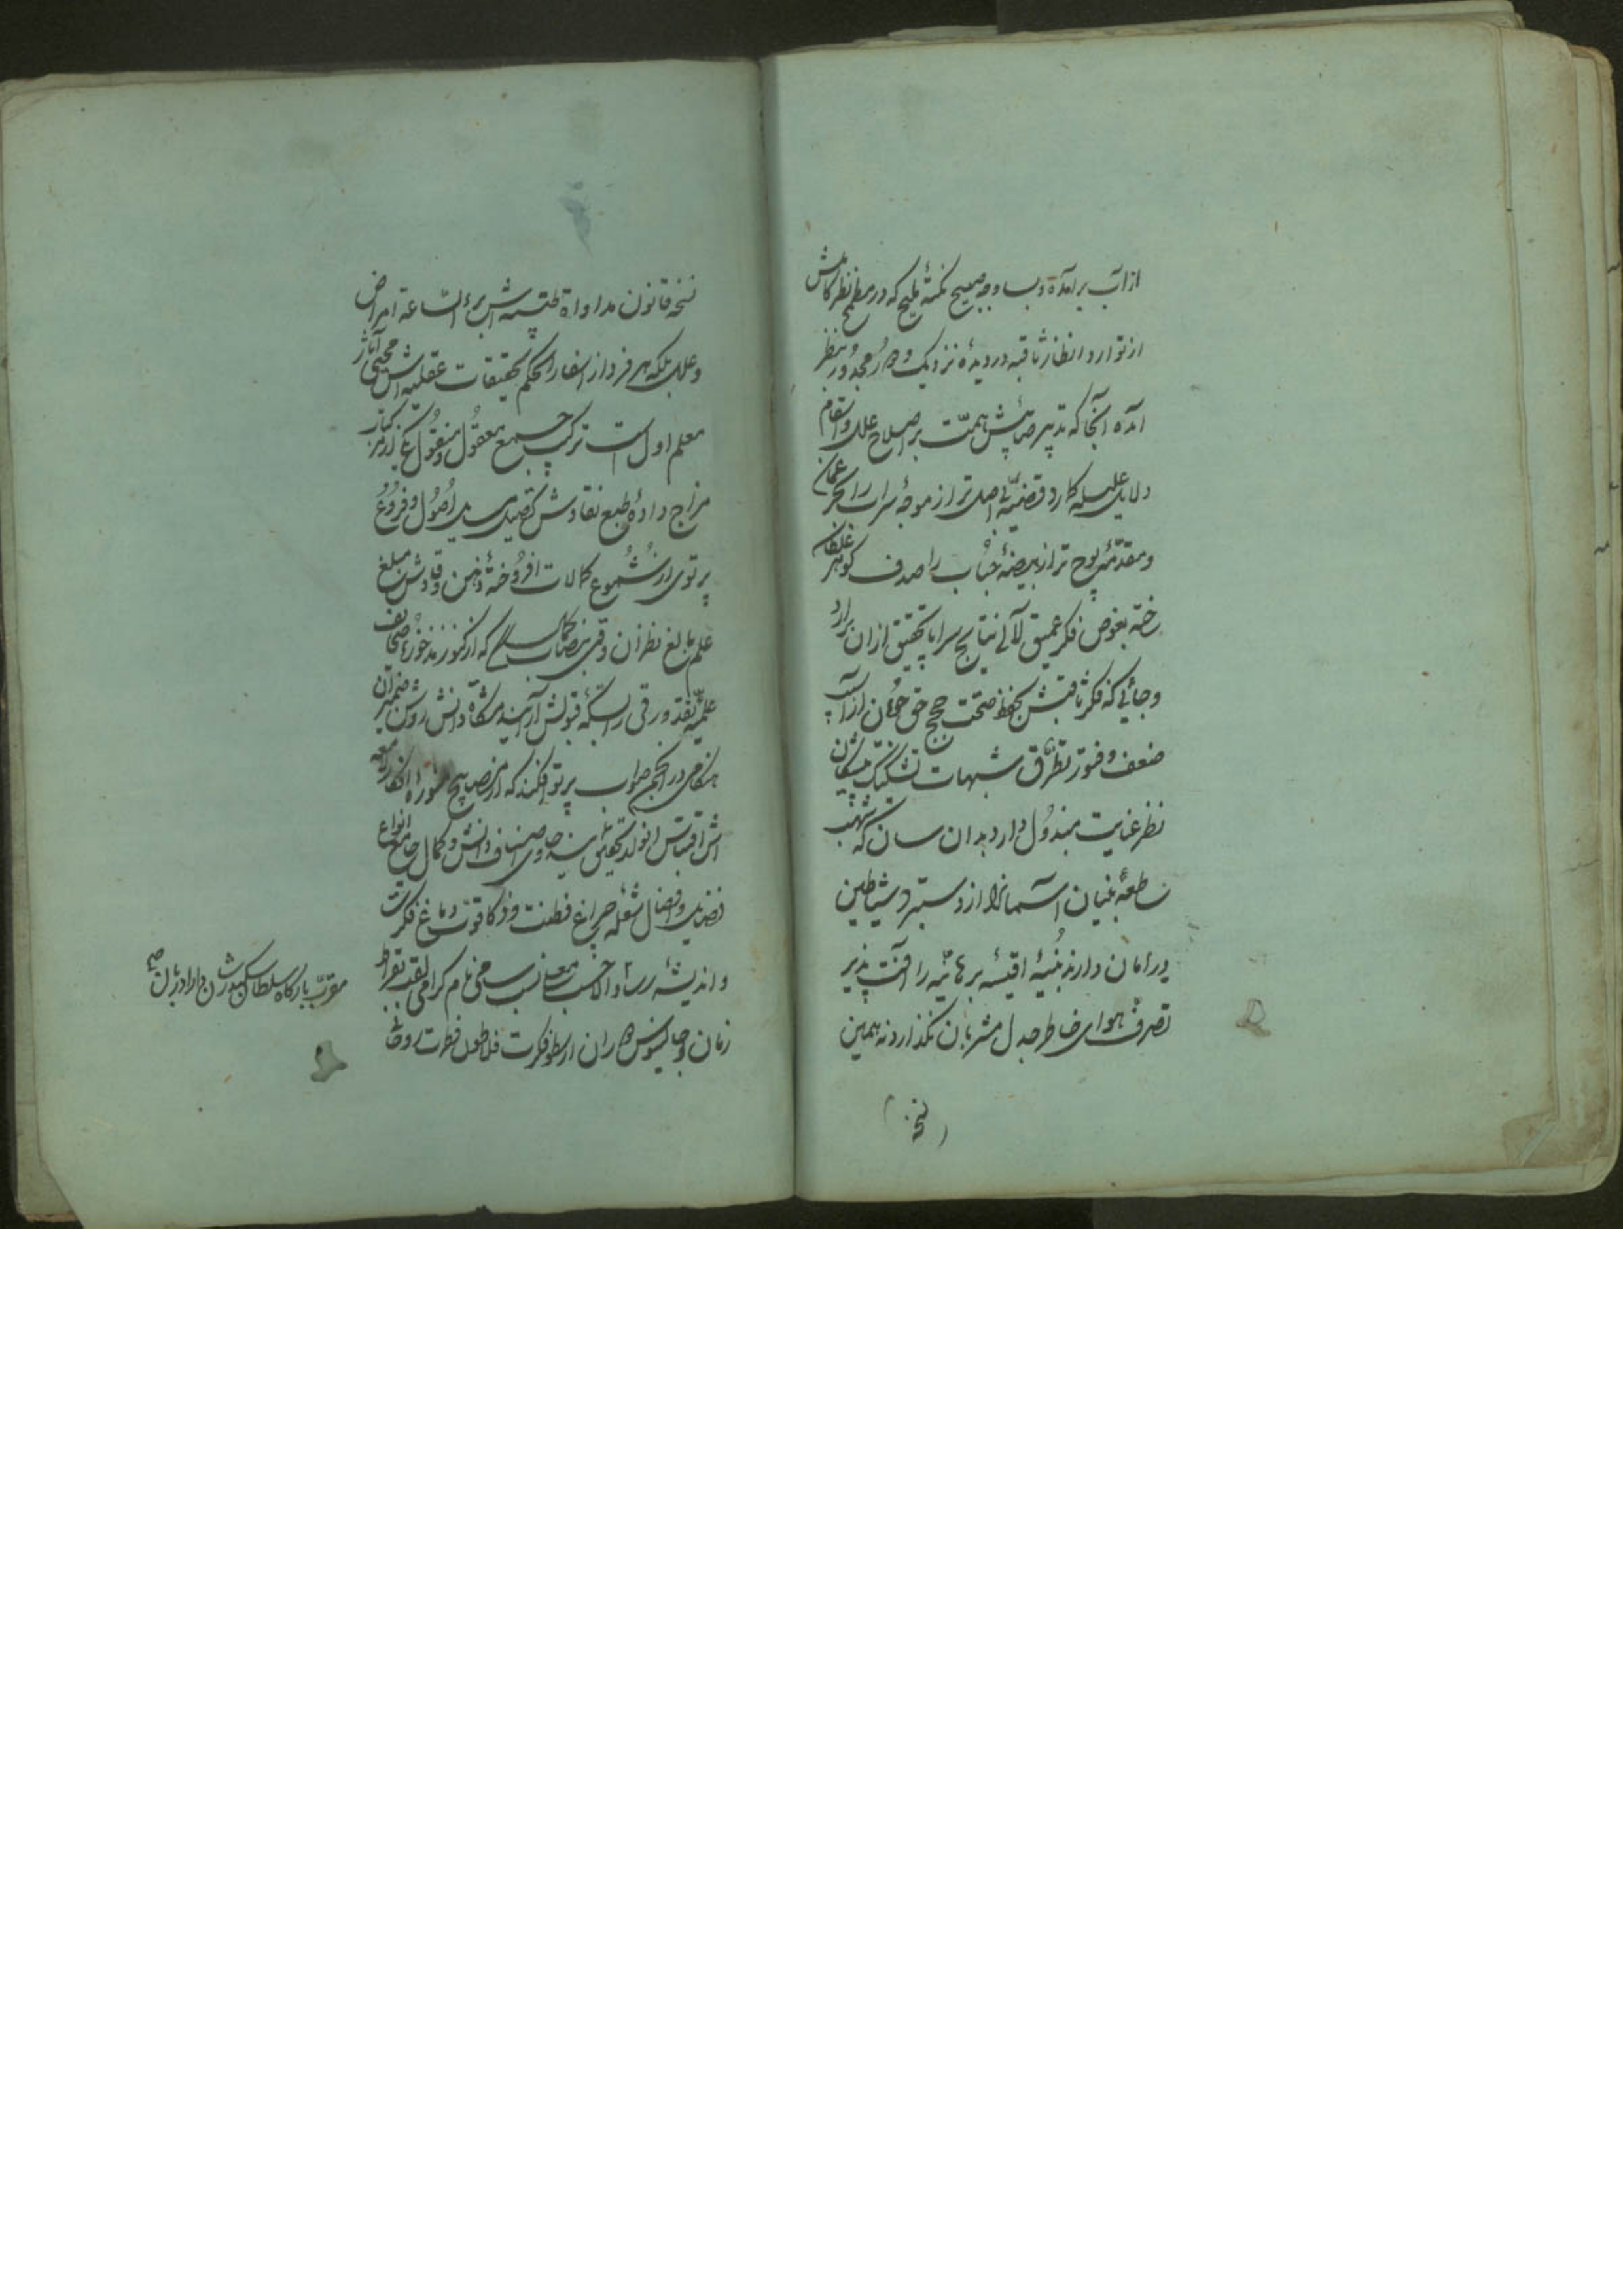 از آب برآمده و بسا وجه صبیح نکتهٔ ملیح که در مطمح نظر کاملش
از توارد انظار ثاقبه در دیدهٔ نزدیک و دور
آمده آنجا که تدبیر صایبش همت بر اصلاح علل و اسقام
دلایل علیله کارد قضیهٔ بی اصل‌تر از موجهٔ سراب را بحر عمان
و مقدمهٔ پوچ‌تر از بیضهٔ حباب را صدف گوهر غلطان
بغوص فکر عمیق لآلی نتایج سراپا تحقیق از ان برآرد
و جائی که فکر ثاقبش بحفظ صحت حجج حق جویان از آسیب
ضعف و فتور تطرق شبهات تشکیک پیشگان
نظر عنایت مبذول دارد بدان سان که شهب
ساطعه بنیان آسمانرا از دستبرد شیاطین
در امان دارند ابنیهٔ اقیسهٔ برهانیه را آفت پذیر
تصرف هوای خاطر جدل مشربان نگذارد نه همین
(نسخه)
نسخه قانون مداواة طبیه‌اش برء الساعة امراض
و علل بلکه هر فرد از اسفار الحکم تحقیقات عقلیه‌اش محیی آثار
معلم اول است ترکیب جمیع معقول و منقول
مزاج دادهٔ طبع نقادش تفصیل مسایل اصول و فروع
پرتوی از شموع کمالات افروختهٔ ذهن وقادش مبلغ
علم بالغ نظران وقتی بنصاب کمال رسد که از کنوز مذخورهٔ صحایف
علمیه نقد ورقی را بسکهٔ قبولش آرایند مشکاة دانش روشن ضمیران
هنگامی در انجمن صواب پرتو افکند که از مصابیح منورهٔ افکار
اش اقتباس انوار تحقیق نمایند حاوی اصناف دانش و کمال جامع انواع
فضایل و افضال شعلهٔ چراغ فطنت و ذکا قوت دماغ فکرت
و اندیشهٔ رسا والا حسب معلی نسب سامی نام گرامی لقب بقراط
زمان و جالینوس دوران ارسطو فکرت فلاطون فطرت
مقرب بارگاه سلطان سکندر شان دارا دربان